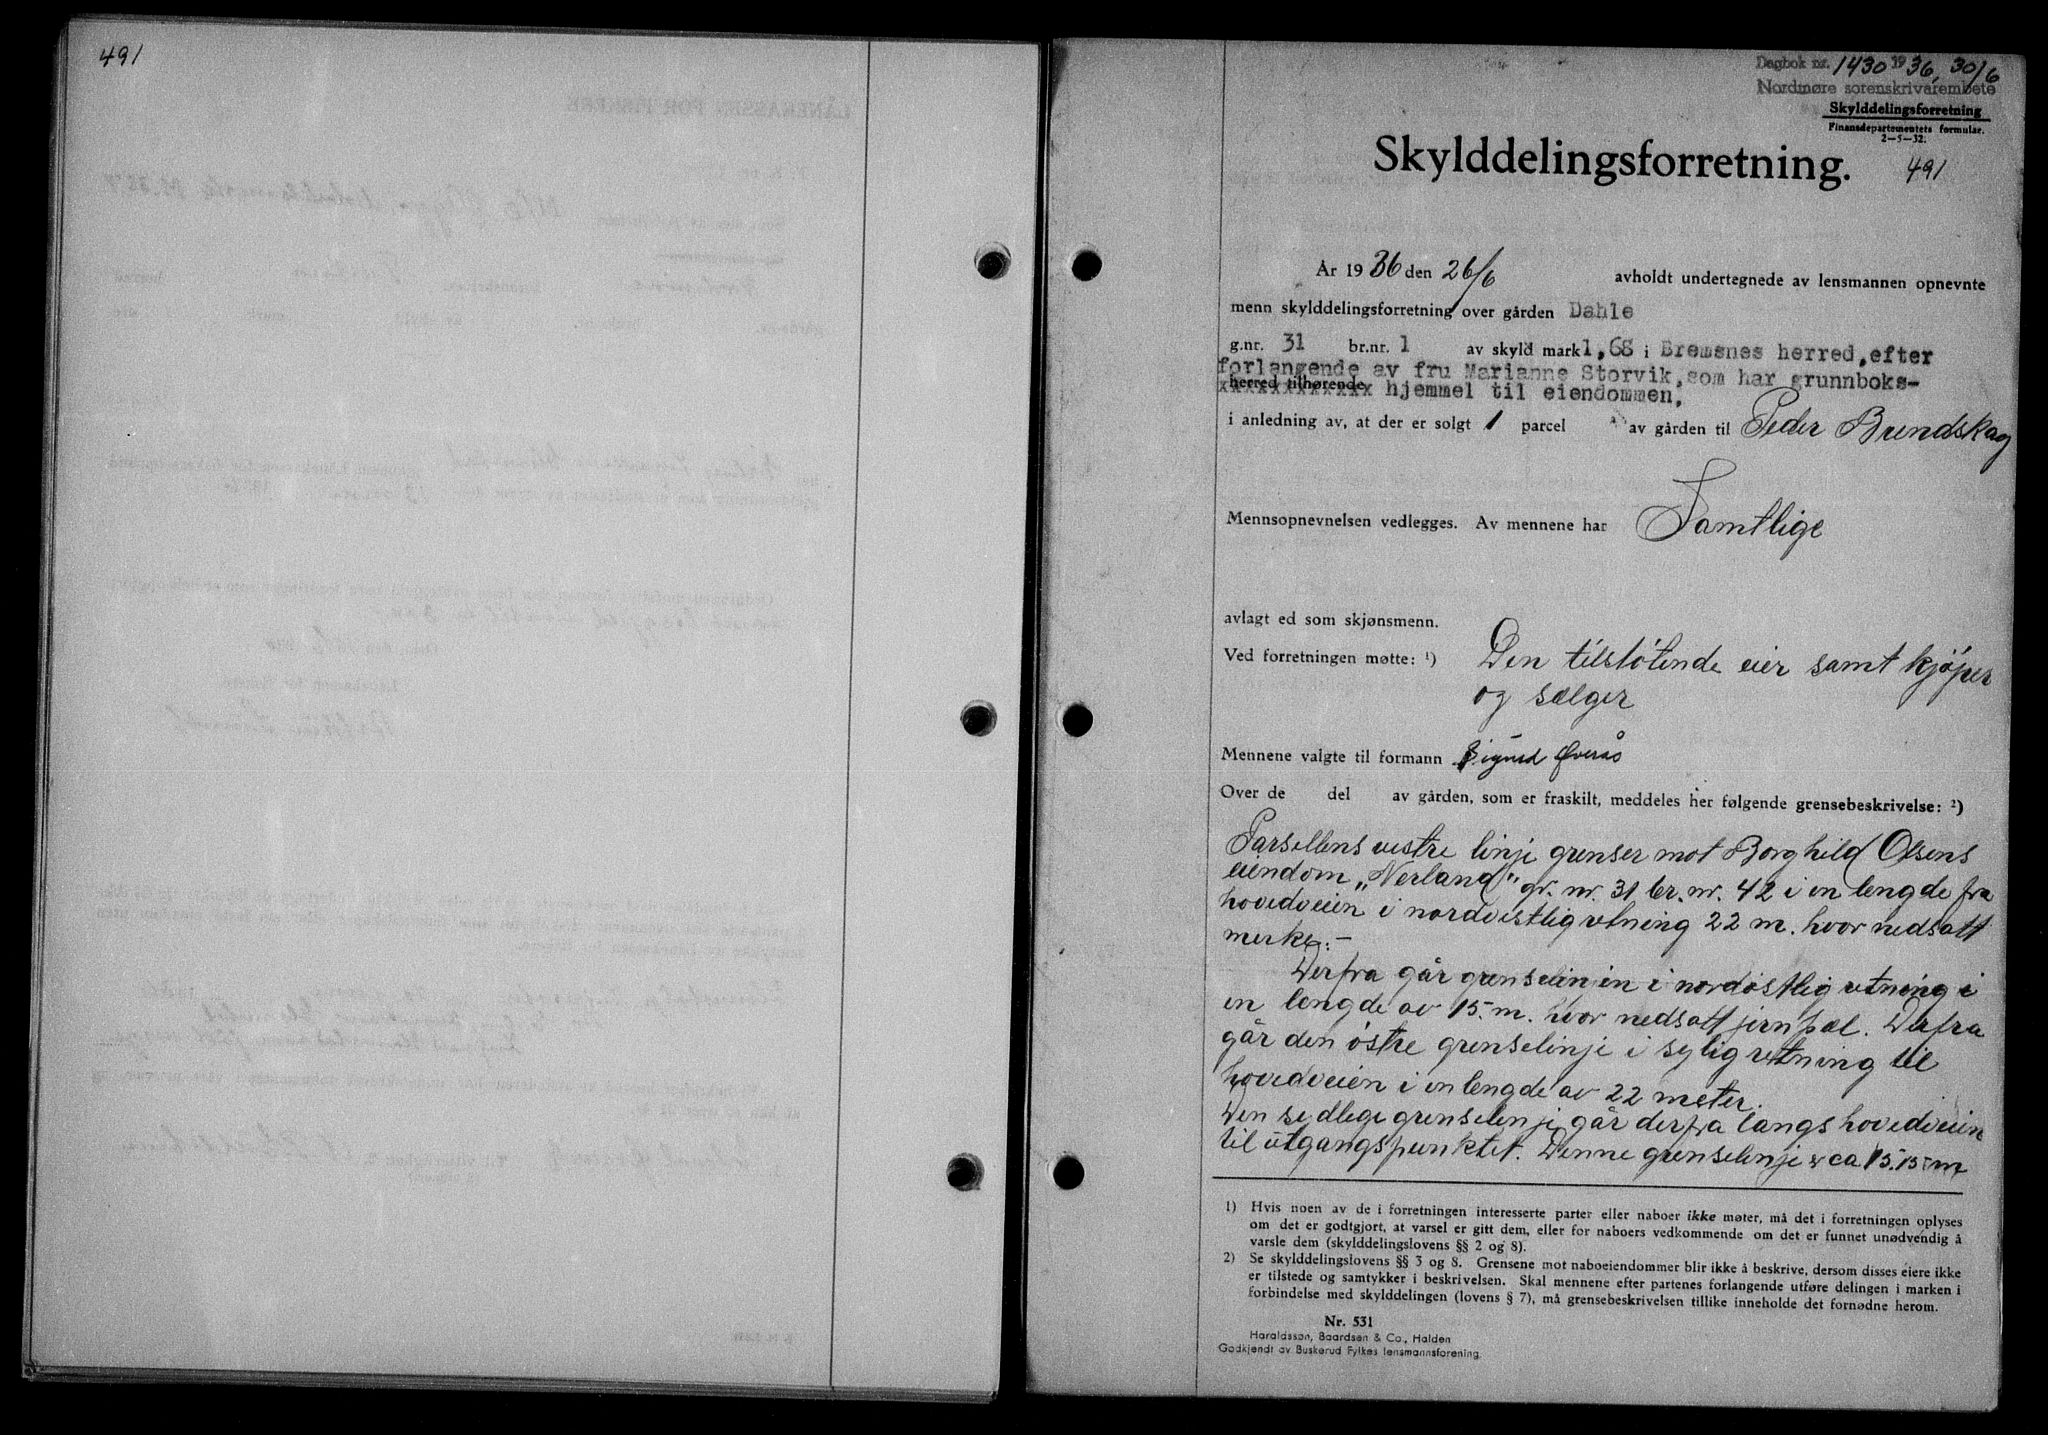 491
Dagbok nr. 1430 1936, 30/6
Nordmøre sorenskriverembete
Skylddelingsforretning
Finansdepartementets formular.
2—5—32.
Skylddelingsforretning.
491
År 1936 den 26/6 avholdt undertegnede av lensmannen opnevnte
menn skylddelingsforretning over gården Dahle
g.nr. 31 br.nr. 1 av skyld mark 1,68 i Bremsnes herred, efter
forlangende av fru Marianne Storvik, som har grunnboks-
herred tilhørende hjemmel til eiendommen.
i anledning av, at der er solgt 1 parcel av gården til Peder Brendskag
Mennsopnevnelsen vedlegges. Av mennene har Samtlige
avlagt ed som skjønsmenn.
Ved forretningen møtte: 1) Den tilstøtende eier samt kjøper
og sælger
Mennene valgte til formann Sigurd Øverås
Over de del av gården, som er fraskilt, meddeles her følgende grensebeskrivelse: 2)
Parsellens vestre linje grenser mot Borghild Olsens
eiendom „Nerland" gr. nr. 31 br. nr. 42 i en lengde fra
hovedveien i nordvestlig retning 22 m. hvor nedsatt
merke:—
Derfra går grenselinjen i nordøstlig retning i
en lengde av 15 m. hvor nedsatt jernpæl. Derfra
går den østre grenselinje i sylig retning til
hovedveien i en lengde av 22 meter.
Den sydlege grenselinje går derfra langs hovedveien
til utgangspunktet. Denne grenselinje er ca 15.15 m
1) Hvis noen av de i forretningen interesserte parter eller naboer ikke møter, må det i forretningen oplyses
om det er godtgjort, at varsel er gitt dem, eller for naboers vedkommende om det er funnet unødvendig å
varsle dem (skylddelingslovens §§ 2 og 8).
2) Se skylddelingslovens §§ 3 og 8. Grensene mot naboeiendommer blir ikke å beskrive, dersom disses eiere ikke
er tilstede og samtykker i beskrivelsen. Skal mennene efter partenes forlangende utføre delingen i marken i
forbindelse med skylddelingen (lovens § 7), må grensebeskrivelsen tillike inneholde det fornødne herom.
Nr. 531
Haraldssøn, Baardsen & Co., Halden
Godkjendt av Buskerud Fylkes lensmannsforening.